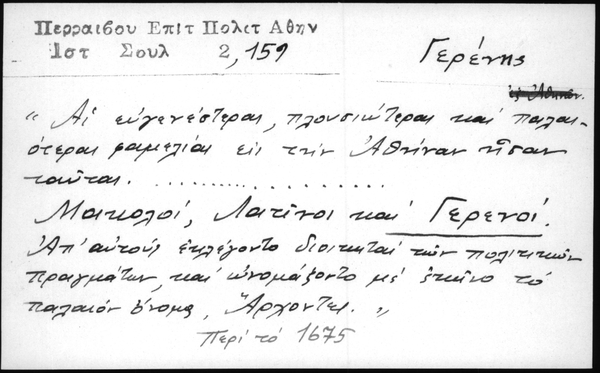 Περραιβου Επίτ Πολιτ Αθην
Ιστ Σουλ 2, 159
Γερένης
ἐξ Ἀθηνῶν.
„ Αἱ εὐγενέστεραι, πλουσιώτεραι καὶ παλαι-
ότεραι φαμελίαι εἰς τὴν Ἀθήναν ἦσαν
ταῦται. ....................
Μακολοί, Λατῖνοι καὶ Γερενοί.
Ἀπ' αὐτοὺς ἐκλέγοντο διοικηταὶ τῶν πολιτικῶν
πραγμάτων, καὶ ὠνομάζοντο μὲ ἐκεῖνο τὸ
παλαιὸν ὄνομα, Ἄρχοντες. „
Περὶ τὸ 1675